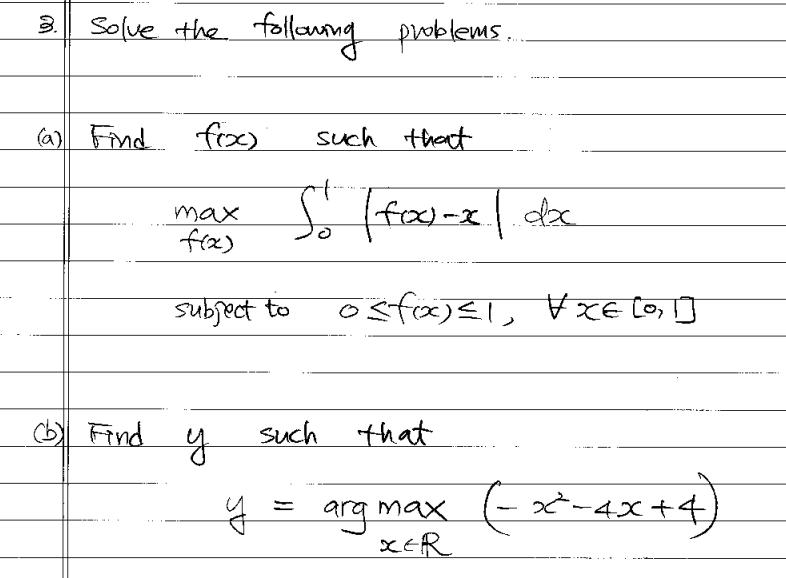 3. Solve the following problems.
(a) Find f(x) such that
max ∫₀¹ |f(x)-x| dx
f(x)
subject to 0≤f(x)≤1, ∀x∈[0,1]
(b) Find y such that
y = arg max (-x²-4x+4)
x∈ℝ